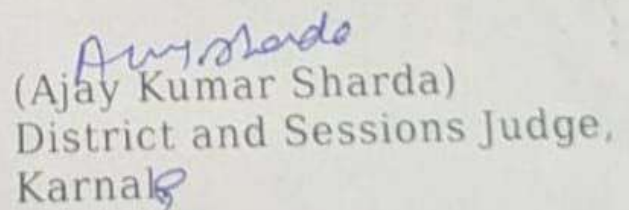 (Ajay Kumar Sharda)
District and Sessions Judge,
Karnal